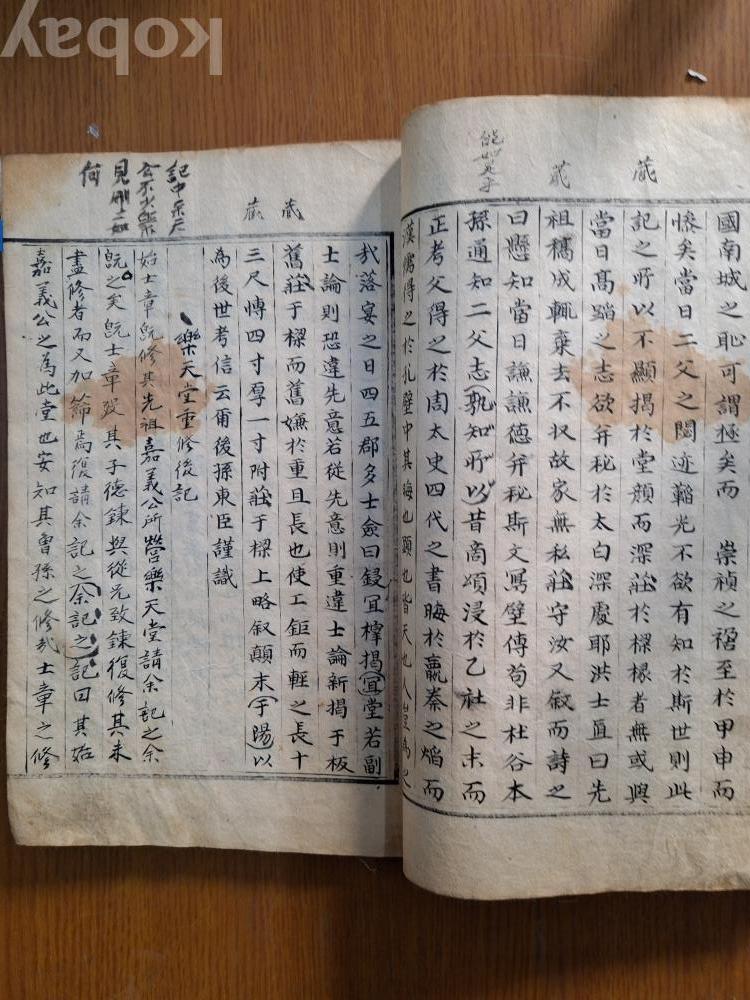 kobay
藏
國南城之恥可謂極矣而 崇禎之禍至於甲申而
慘矣當日二父之閟迹韜光不欲有知於斯世則此
記之所以不顯揭於堂顔而深莊於樑椽者無或與
當日高蹈之志欲幷秘於太白深處耶洪士直曰先
祖穚成輒棄去不収故家無私莊守汝又叙而詩之
曰懸知當日謙謙德幷秘斯文寫壁傳苟非杜谷本
孫通知二父志孰知所以昔商頌浸於乙社之末而
正考父得之於周太史四代之書晦於嬴秦之焰而
漢儒得之於孔壁中其晦也顯也皆天也人豈爲之
藏
哉落宴之日四五郡多士僉曰鋟宜樟揭宜堂若副
士論則恐違先意若從先意則重違士論新揭于板
舊莊于樑而舊嫌於重且長也使工鉅而輕之長十
三尺愽四寸厚一寸附莊于樑上略叙顚末于陽以
為後世考信云爾後孫東臣謹識
樂天堂重修後記
始士章旣修其先祖嘉義公所營樂天堂請余記之余
旣之矣旣士章歿其子德鍊與從兄致鍊復修其未
盡修者而又加節焉復請余記之余記之記曰其始
嘉義公之為此堂也安知其曾孫之修哉士章之修
見刪之如
何